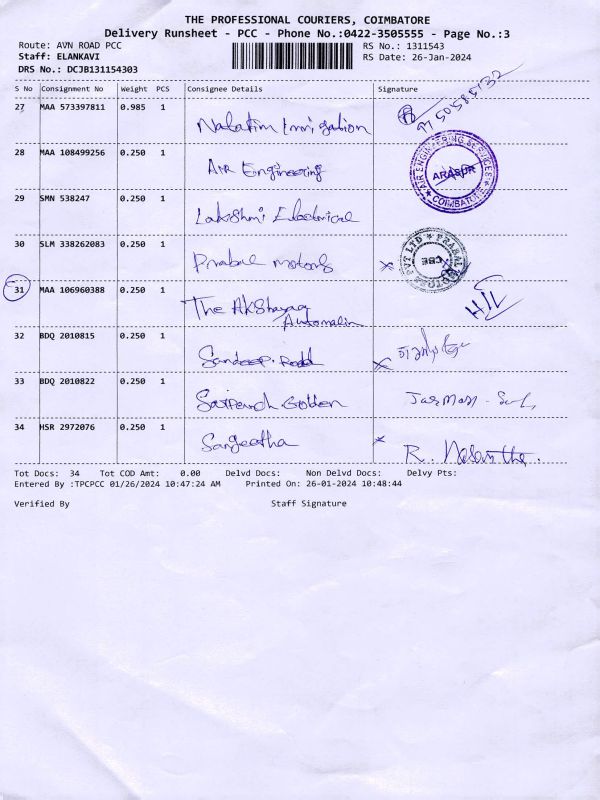 THE PROFESSIONAL COURIERS, COIMBATORE
Delivery Runsheet - PCC - Phone No.:0422-3505555 - Page No.:3
Route: AVN ROAD PCC RS No.: 1311543
Staff: ELANKAVI RS Date: 26-Jan-2024
DRS No.: DCJB131154303
S No Consignment No Weight PCS Consignee Details Signature
27 MAA 573397811 0.985 1
28 MAA 108499256 0.250 1 AIR Engineering
AIR ENGINEERING
ARASUR
COIMBATORE
29 SMN 538247 0.250 1 Lakshmi Electrical
30 SLM 338262083 0.250 1 Prabal motors
PRABAL MOTORS PVT LTD
CBE
31 MAA 106960388 0.250 1 The Akshaya
Automation
32 BDQ 2010815 0.250 1 Sandeep
33 BDQ 2010822 0.250 1 Golden
34 HSR 2972076 0.250 1 Sangeetha
R.
Tot Docs: 34 Tot COD Amt: 0.00 Delvd Docs: Non Delvd Docs: Delvy Pts:
Entered By :TPCPCC 01/26/2024 10:47:24 AM Printed On: 26-01-2024 10:48:44
Verified By Staff Signature